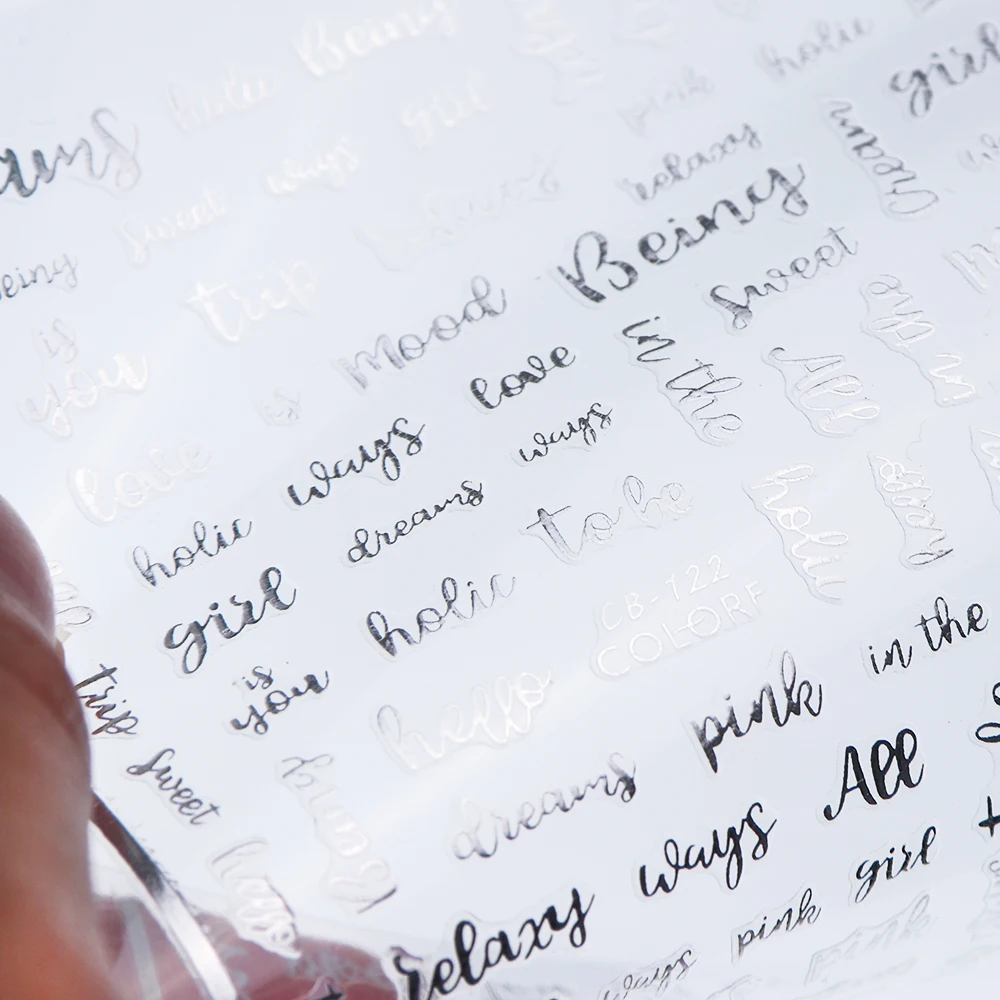 Being
holic
girl
holic
girl
pink
ways
relaxy
Dream
sweet
Being
eing
trip
sweet
Mood
in the
is
you
is
love
All
in the
love
ways
ways
holic
dreams
to be
holic
relaxy
girl
holic
CB-122
COLORF
in the
is
you
trip
hello
pink
sweet
dreams
All
Being
hello
ways
girl
relaxy
pink
ways
pink